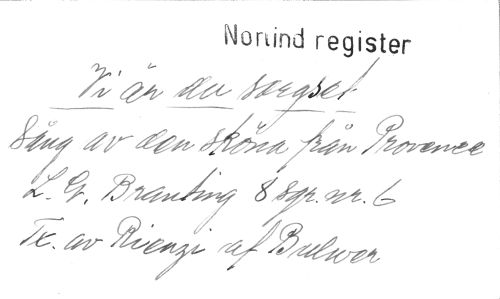 Norlind register
Vi är du sorgset
Sång av den sköna från Provence
L. G. Branting 8 sgr. nr. 6
Tx. av Rienzi af Bulwer